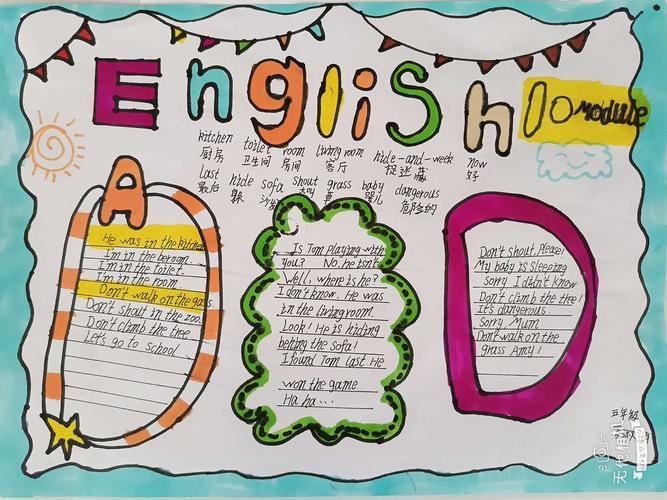 English
10 Module
kitchen toilet room living room hide-and-week now
厨房 卫生间 房间 客厅 捉迷藏 好
last hide sofa shout grass baby dangerous
最后 躲 沙发 大叫 草 婴儿 危险的
A
He was in the kitchen
I'm in the beroom.
I'm in the toilet.
I'm in the room
Don't walk on the gass.
Don't shout in the zoo.
Don't climb the tree
Let's go to school
Is Tom playing with
you? No. he isn't
Well, where is he?
I don't know. He was
in the living room.
Look! He is hiding
behing the sofa!
I found Tom last He
won the game
Ha ha...
D
Don't shout, please!
My baby is sleeping
Sorry I didn't know
Don't climb the tree!
It's dangerous.
Sorry, Mum
Don't walk on the
grass Amy!
五年级
无他相机